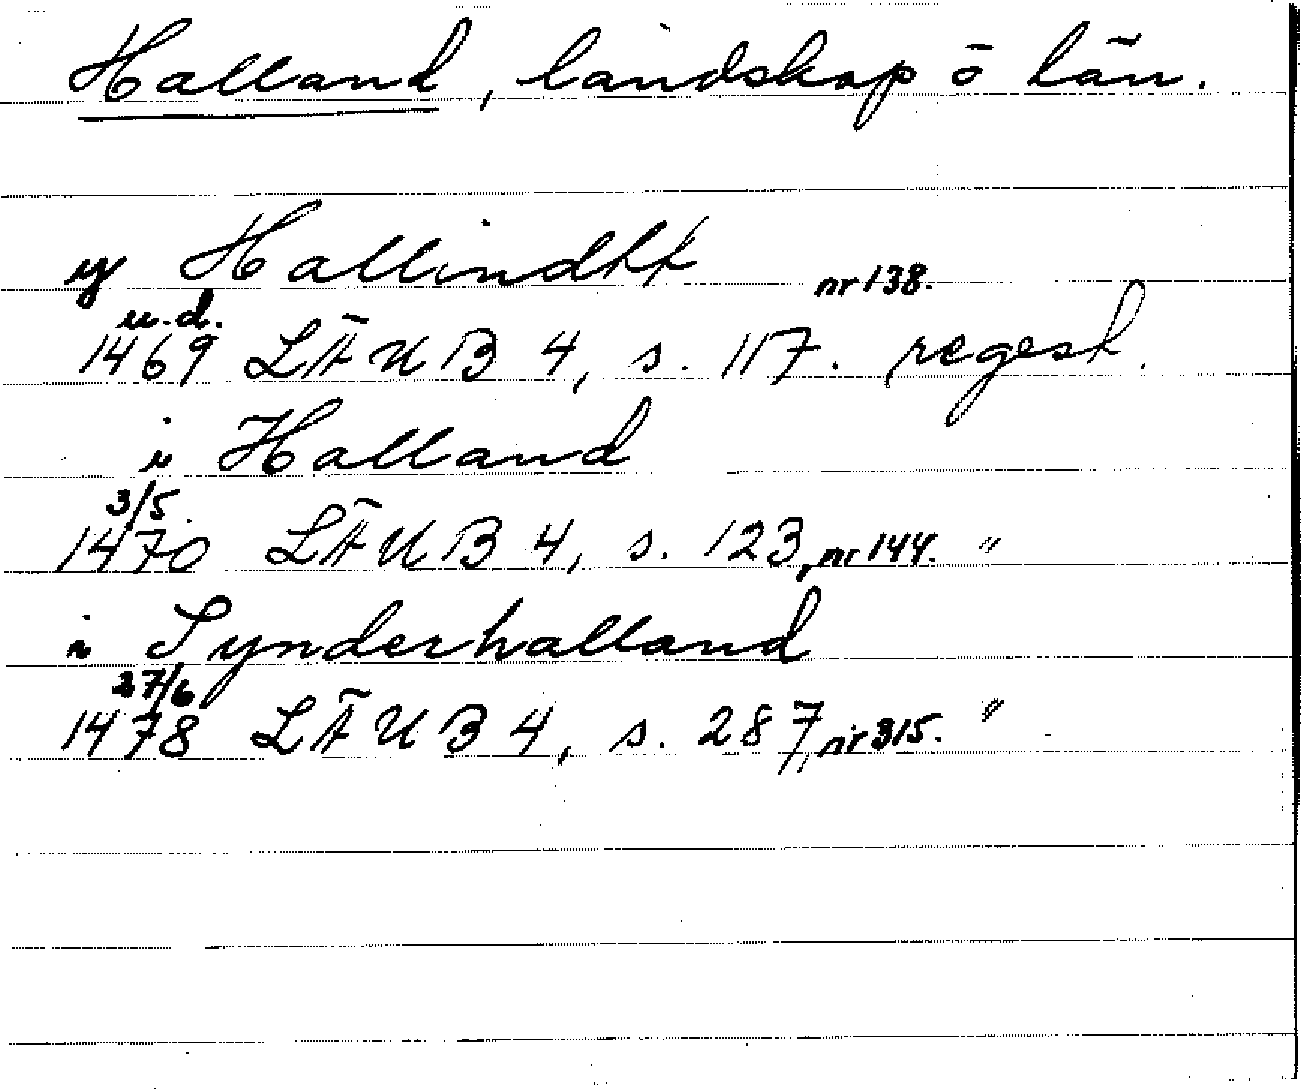 Halland, landskap o län.
y Hallindhh nr 138.
u.d.
1469 LÄUB 4, s. 117. regest.
i Halland
3/5.
1470 LÄUB 4, s. 123, nr 144. "
i Synderhalland
27/6
1478 LÄUB 4, s. 287, nr 315. "